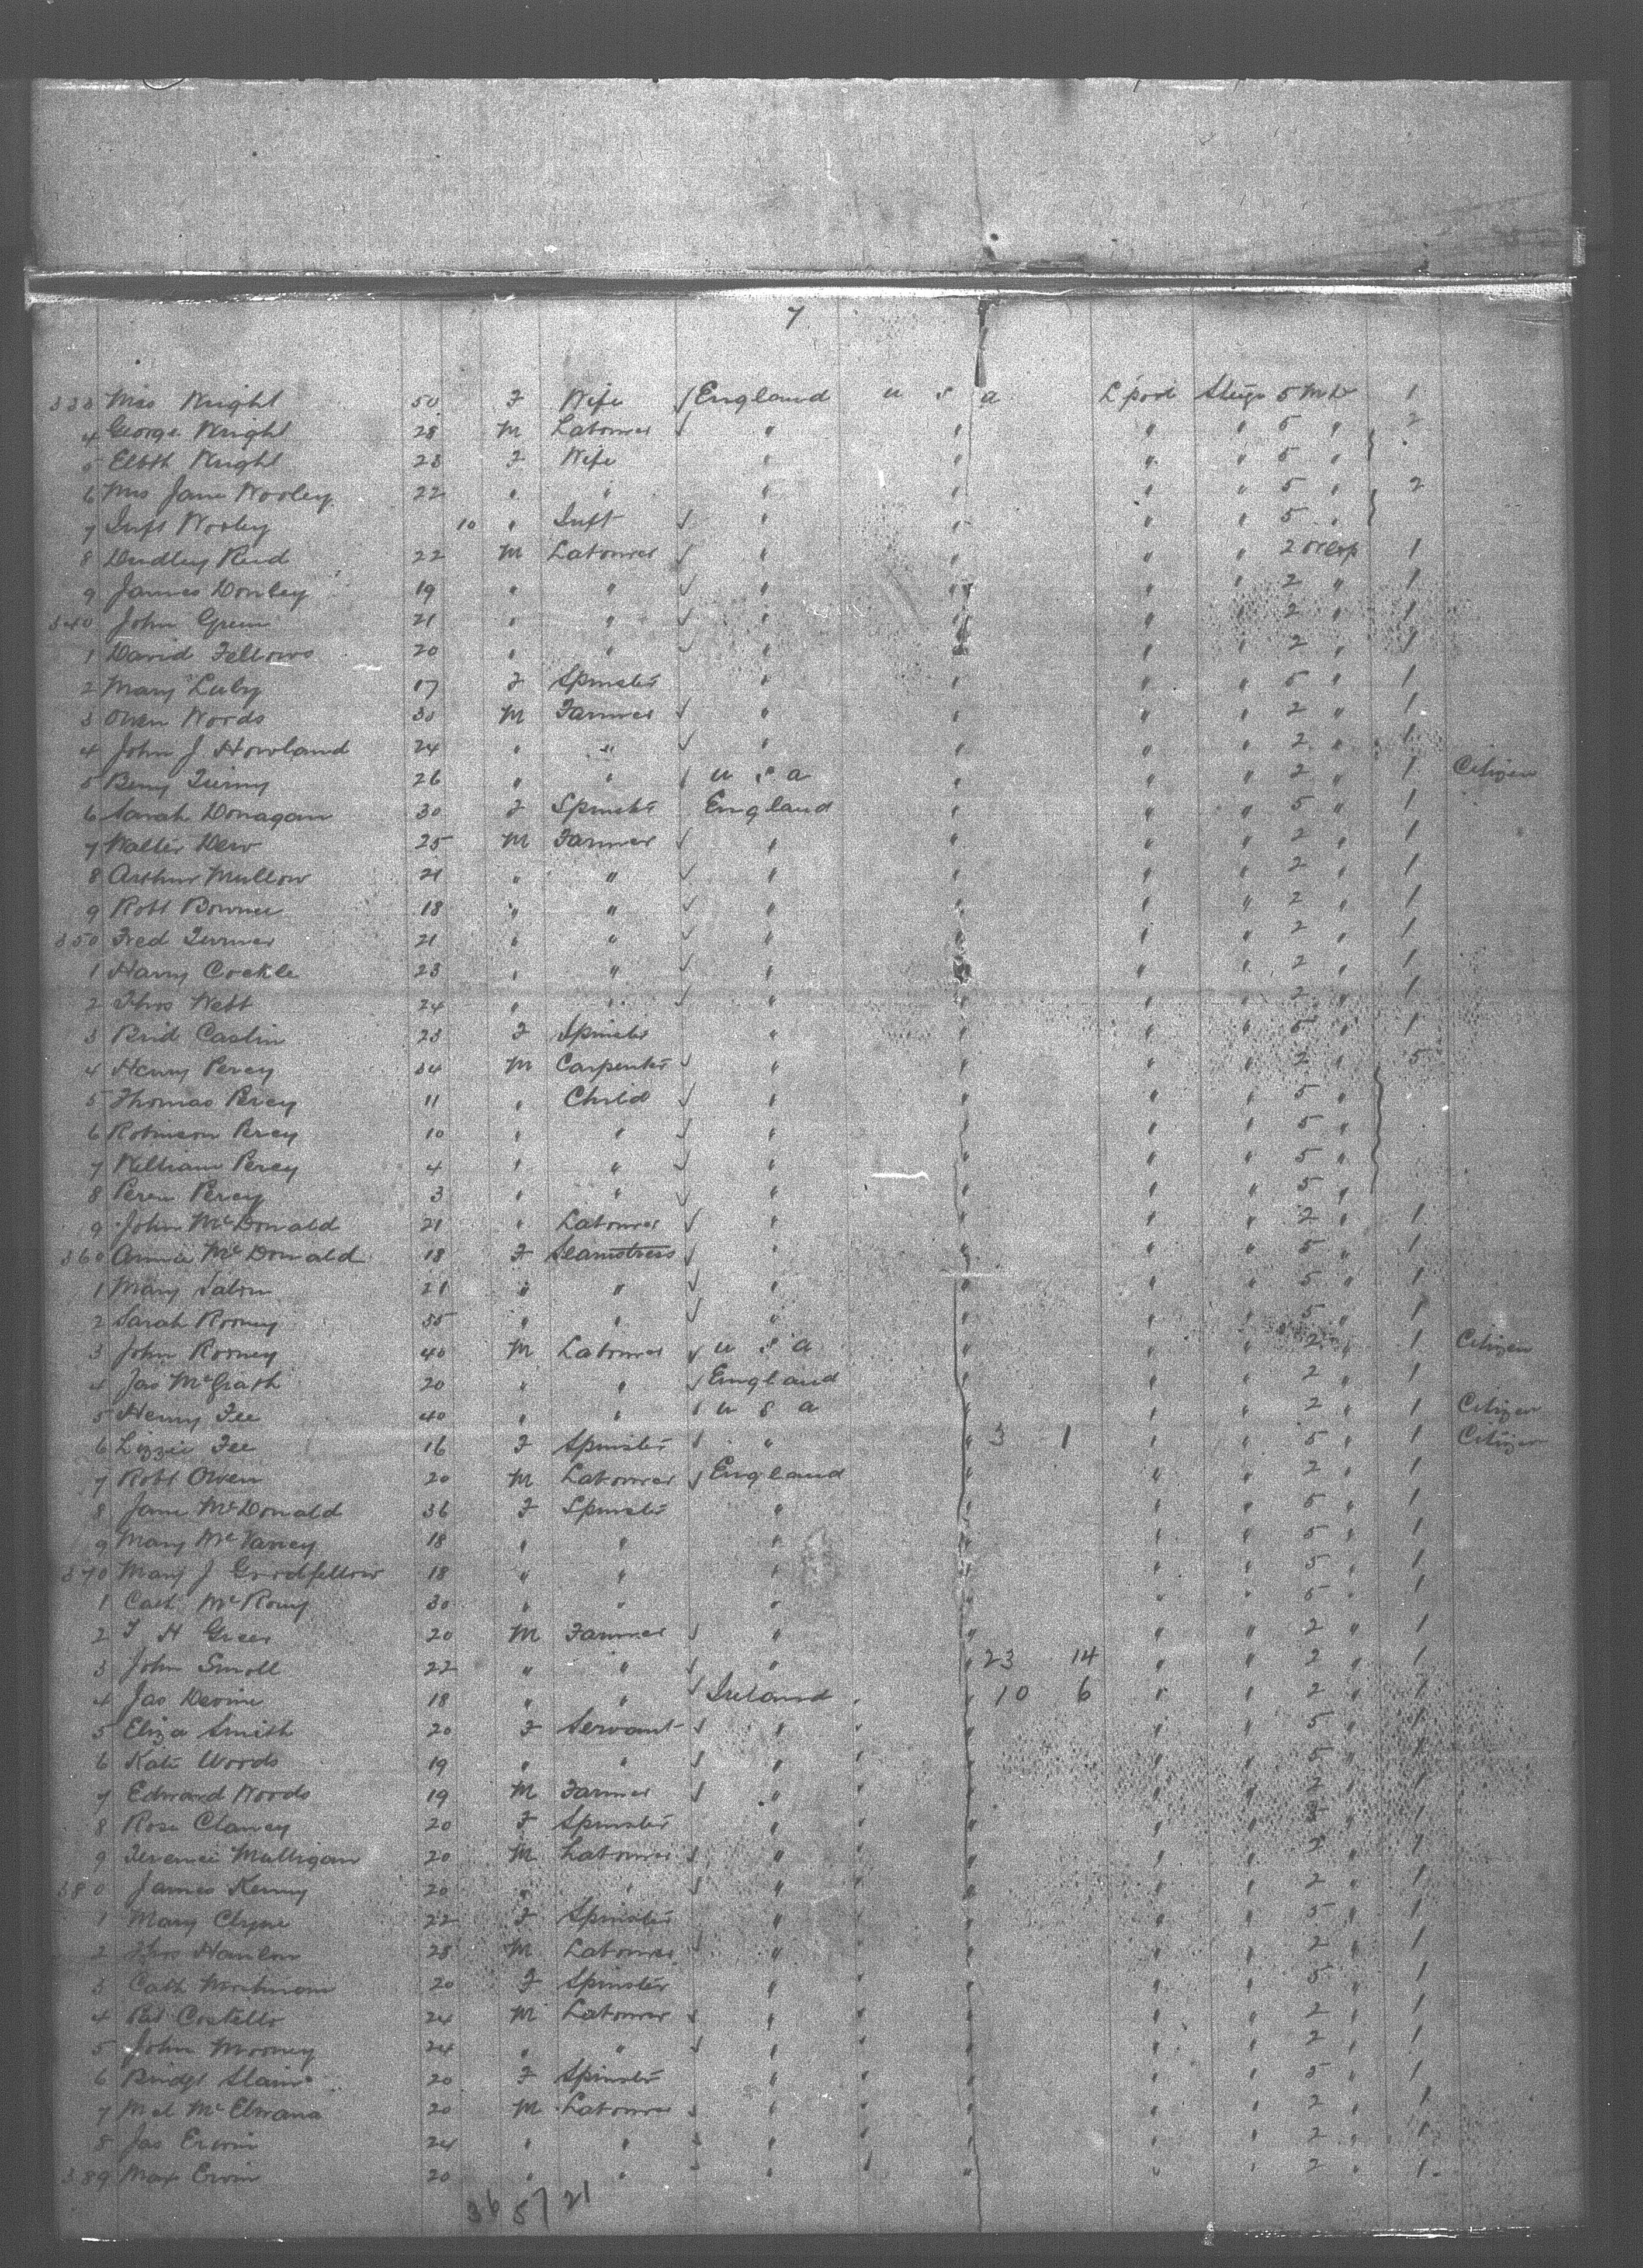 7
333 Mrs Wright 50 F Wife √ England U S A L'pool Stege 5 Mid 1
4 George Wright 28 M Labourer √ " " " " 5 " 2
5 Elbth Wright 28 F Wife " " " " 5 "
6 Mrs Jane Worley 22 " " " " " " 5 " 2
7 Inft Worley 10 " Inft √ " " " " 5 "
8 Dudley Reid 22 M Labourer √ " " " " 2 1
9 James Donley 19 " " √ " " " " 2 " 1
340 John Green 21 " " √ " " " " 2 " 1
1 David Fellows 20 " " √ " " " " 2 " 1
2 Mary Luby 17 F Spinster " " " " 5 " 1
3 Owen Woods 30 M Farmer √ " " " " 2 " 1
4 John J Howland 24 " " √ " " " " 2 " 1
5 26 " " √ U S A " " " 2 " 1 Citizen
6 Sarah Donagan 30 F Spinster England " " " 5 " 1
7 Walter Dew 25 M Farmer √ " " " " 2 " 1
8 Arthur Mullow 21 " " √ " " " " 2 " 1
9 Robt 18 " " √ " " " " 2 " 1
350 Fred Turner 21 " " √ " " " " 2 " 1
1 Harry Cockle 23 " " √ " " " " 2 " 1
2 Thos Webb 24 " " √ " " " " 2 " 1
3 Brid Castin 23 F Spinster " " " " 5 " 1
4 Henry Percy 34 M Carpenter √ " " " " 2 " 5
5 Thomas Percy 11 " Child √ " " " " 5 "
6 Robinson Percy 10 " " √ " " " " 5 "
7 William Percy 4 " " √ " " " " 5 "
8 Percy 3 " " √ " " " " 5 "
9 John McDonald 21 " Labourer √ " " " " 2 " 1
360 Annie McDonald 18 F Seamstress √ " " " " 5 " 1
1 Mary 21 " " √ " " " " 5 " 1
2 Sarah Rooney 35 " " √ " " " " 5 " 1
3 John Rooney 40 M Labourer √ U S A " " " 2 " 1 Citizen
4 Jas McGrath 20 " " √ England " " " 2 " 1
5 Henry Fee 40 " " √ U S A " " " 2 " 1 Citizen
6 Lizzie Fee 16 F Spinster √ " " 3 1 " " 5 " 1 Citizen
7 Robt Owen 20 M Labourer √ England " " " 2 " 1
8 Jane McDonald 36 F Spinster " " " " 5 " 1
9 Mary McVarrey 18 " " " " " " 5 " 1
370 Mary J Goodfellow 18 " " " " " " 5 " 1
1 Cath McRoury 30 " " " " " " 5 " 1
2 T H Greer 20 M Farmer √ " " " " 2 " 1
3 John Smoll 22 " " √ " " 23 14 " " 2 " 1
4 Jas Devine 18 " " √ Ireland " 10 6 " " 2 " 1
5 Eliza Smith 20 F Servant √ " " " " 5 " 1
6 Kate Woods 19 " " √ " " " " 5 " 1
7 Edward Woods 19 M Farmer √ " " " " 2 " 1
8 Rose Clancy 20 F Spinster " " " " 5 " 1
9 Terence Mulligan 20 M Labourer √ " " " " 2 " 1
380 James Kenny 20 " " √ " " " " 2 " 1
1 Mary Clyne 22 F Spinster " " " " 5 " 1
2 Thos Hanlon 28 M Labourer √ " " " " 2 " 1
3 Cath 20 F Spinster " " " " 5 " 1
4 Pat Costello 24 M Labourer √ " " " " 2 " 1
5 John Mooney 24 " " √ " " " " 2 " 1
6 Bridgt Slain 20 F Spinster " " " " 5 " 1
7 McElwana 20 M Labourer √ " " " " 2 " 1
8 Jas Erwin 24 " " √ " " " " 2 " 1
389 Max Erwin 20 " " " " " " 2 " 1
36 5/21